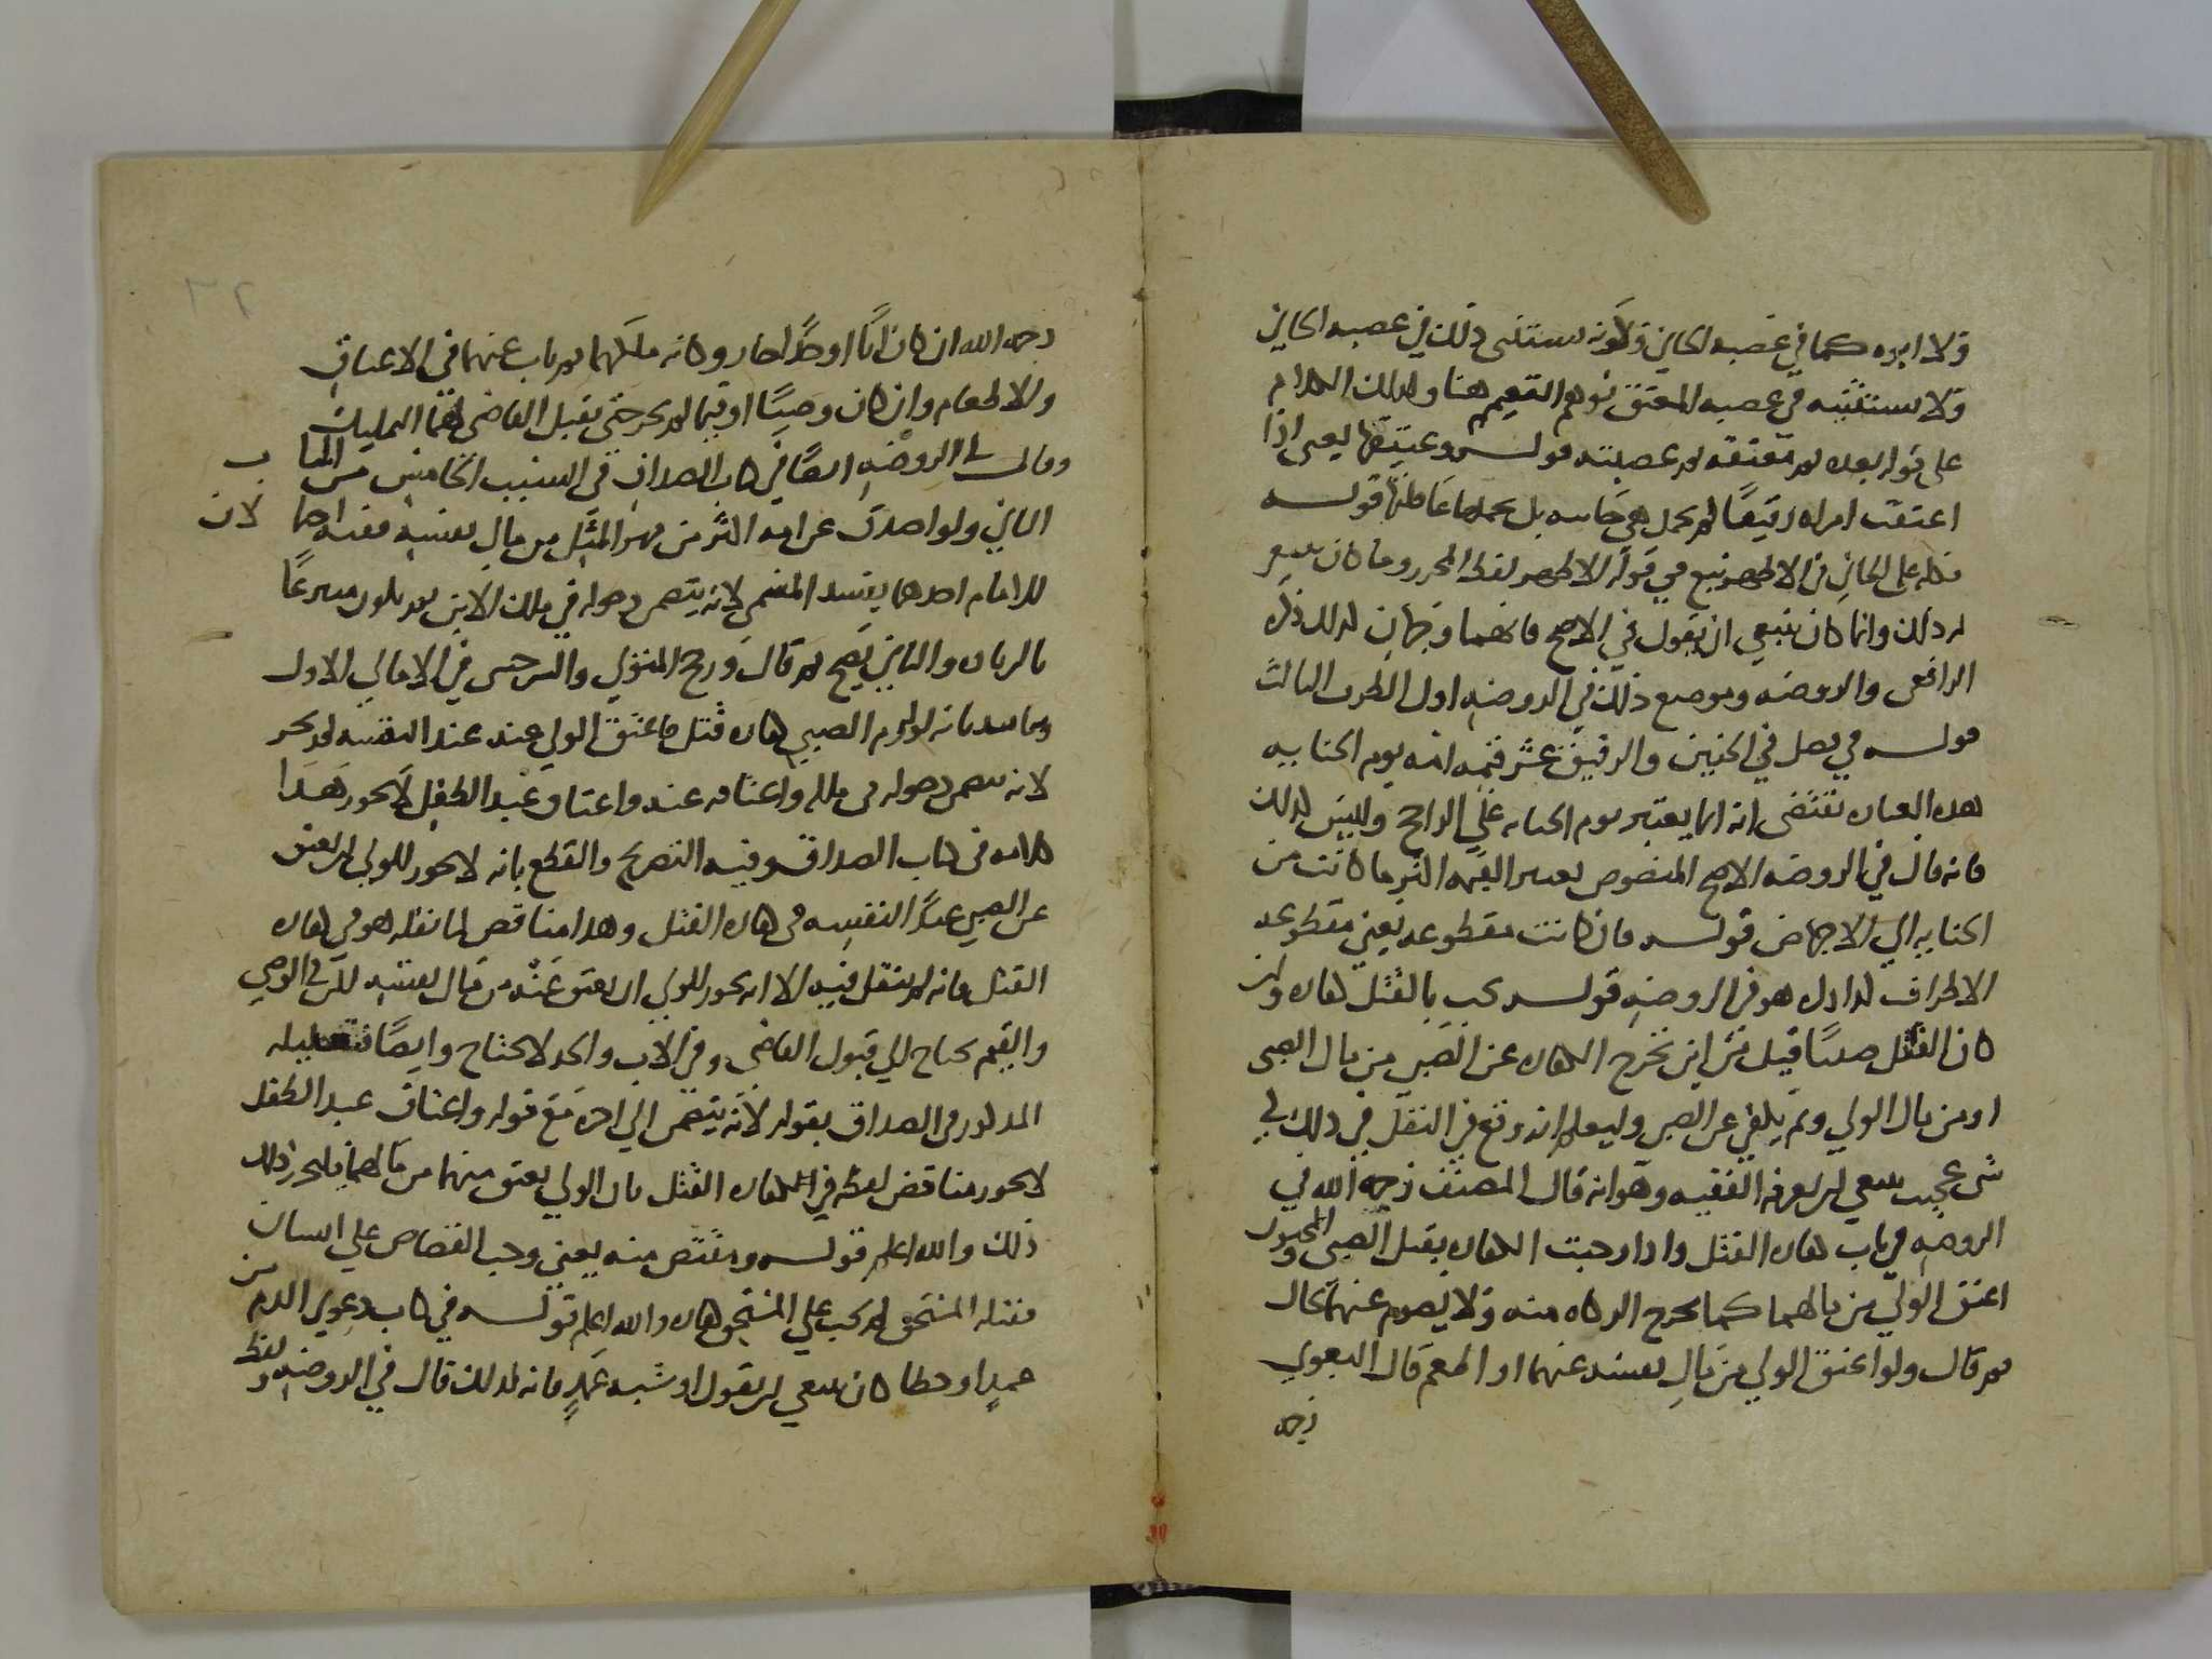 ولا ابوه كما في عصبه الجاني وكونه يستثنى ذلك في عصبه الجاني
ولا يستثنيه في عصبه المعتق توهم التعميم هنا وكذلك الكلام
على قوله بعده ثم معتقه ثم عصبته قوله وعتيقها يعني اذا
اعتقت امراه رقيقا لم يحمل هي جنايته بل يحملها عاقلتها قوله
فكله على الجاني في الاظهر تبع في قوله الاظهر لفظ المحرر وما كان ينبغي
له ذلك وانما كان ينبغي ان يقول في الاصح فانهما وجهان كذلك ذكره
الرافعي والروضه وموضع ذلك في الروضه اول الطرف الثالث
قوله في فصل في الجنين والرقيق عشر قيمه امه يوم الجنايه
هذه العباره تقتضي انه انما يعتبر يوم الجنايه على الراجح وليس كذلك
فانه قال في الروضه الاصح المنصوص يعتبر القيمه اكثر ما كانت من
الجنايه الي الاجهاض قوله فان كانت مقطوعه يعني مقطوعه
الاطراف هو في الروضه قوله يجب بالقتل كفاره وان
كان القاتل صبيا قيل من اين تخرج الكفاره عن الصبي من مال الصبي
او من مال الولي ولم عن الصبي وليعلم انه وقع في النقل في ذلك
شى عجيب ينبغي ان يعرفه الفقيه وهو انه قال المصنف رحمه الله في
الروضه في باب كفاره القتل واذا وجبت الكفاره بقتل الصبي والمجنون
اعتق الولي من مالهما كما يخرج الزكاه منه ولا يصوم عنهما بحال
ثم قال ولو اعتق الولي من مال نفسه عنهما او اطعم قال البغوي
رحمه
رحمه الله ان كان ابا او جدا جاز وكانه ملكهما ثم ناب عنهما في الاعتاق
والاطعام وان كان وصيا او قيما لم يجز حتى يقبل القاضي لهما التمليك
وقال في الروضه ايضا في كتاب الصداق في السبب الخامس من الباب
الثاني ولو اصدق عن ابنه اكثر من مهر المثل من مال نفسه ففيه احتمالان
للامام احدهما يفسد المسمى لانه يتضمن دخوله في ملك الابن ثم يكون متبرعا
بالزياده والثاني يصح ثم قال ورجح المتولي والسرخسي في الامالي الاول
بانه لو لزم الصبي كفاره قتل فاعتق الولي عنه عبدا لنفسه لم يجز
لانه يتضمن دخوله في ملكه واعتاقه عنه واعتاق عبد الطفل لا يجوز هذا
كلامه في كتاب الصداق وفيه التصريح والقطع بانه لا يجوز للولي ان يعتق
عن الصبي عبدا لنفسه في كفاره القتل وهذا مناقض لما نقله هو في كفاره
القتل فانه لم ينقل فيه الا انه يجوز للولي ان يعتق عنه من مال نفسه لكن في الوصي
والقيم يحتاج الي قبول القاضي وفي الاب والجد لا يحتاج وايضا فتعليله
المذكور في الصداق بقوله لانه يتضمن الي اخره مع قوله واعتاق عبد الطفل
لا يجوز مناقض لفظه في كفاره القتل بان الولي يعتق عنهما من مالهما فليحرر ذلك
ذلك والله اعلم قوله ومقتص منه يعني وجب القصاص علي انسان
فقتله المستحق لم يجب علي المستحق كفاره والله اعلم قوله في كتاب دعوي الدم من
عمد او خطا كان ينبغي ان يقول او شبه عمد فانه كذلك قال في الروضه ولفظ